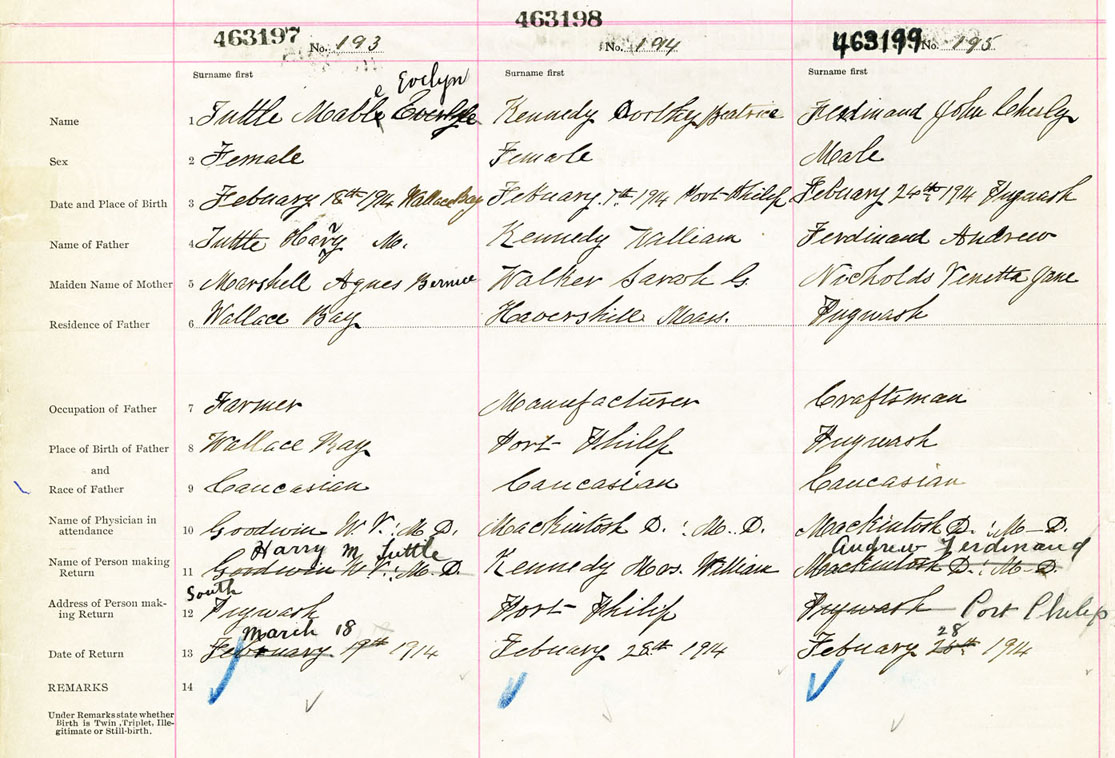 463197 No. 193 463198 No. 194 463199 No. 195
Surname first Surname first Surname first
e Evelyn
Name 1 Tuttle Mable Kennedy Dorthy Beatrice Ferdinand John
Sex 2 Female Female Male
Date and Place of Birth 3 February 18th 1914 Wallace Bay Febuary 7th 1914 Port Philip Febuary 24th 1914 Pugwash
Name of Father 4 Tuttle Harry M. Kennedy William Ferdinand Andrew
Maiden Name of Mother 5 Marshell Agnes Bernice Walker Sarah G. Nicholds Venetta Jane
Residence of Father 6 Wallace Bay Havershille Mass. Pugwash
Occupation of Father 7 Farmer Manufacturer Craftsman
Place of Birth of Father 8 Wallace Bay Port Philip Pugwash
and
Race of Father 9 Caucasian Caucasian Caucasian
Name of Physician in
attendance 10 Goodwin W. V. : M. D. Mackintosh D. : M. D. Mackintosh D. : M. D.
Harry M Tuttle Andrew Ferdinand
Name of Person making
Return 11 Goodwin W. V. : M. D. Kennedy Mrs. William Mackintosh D. : M. D.
South
Address of Person mak-
ing Return 12 Pugwash Port Philip Pugwash Port Philip
March 18 28
Date of Return 13 February 19th 1914 February 28th 1914 February 1914
REMARKS 14
Under Remarks state whether
Birth is Twin, Triplet, Ille-
gitimate or Still-birth.